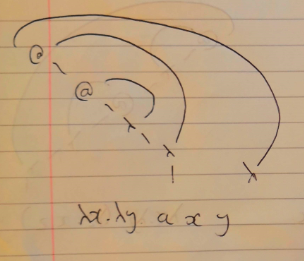 @
@
λ
λ λ
λx.λy a x y